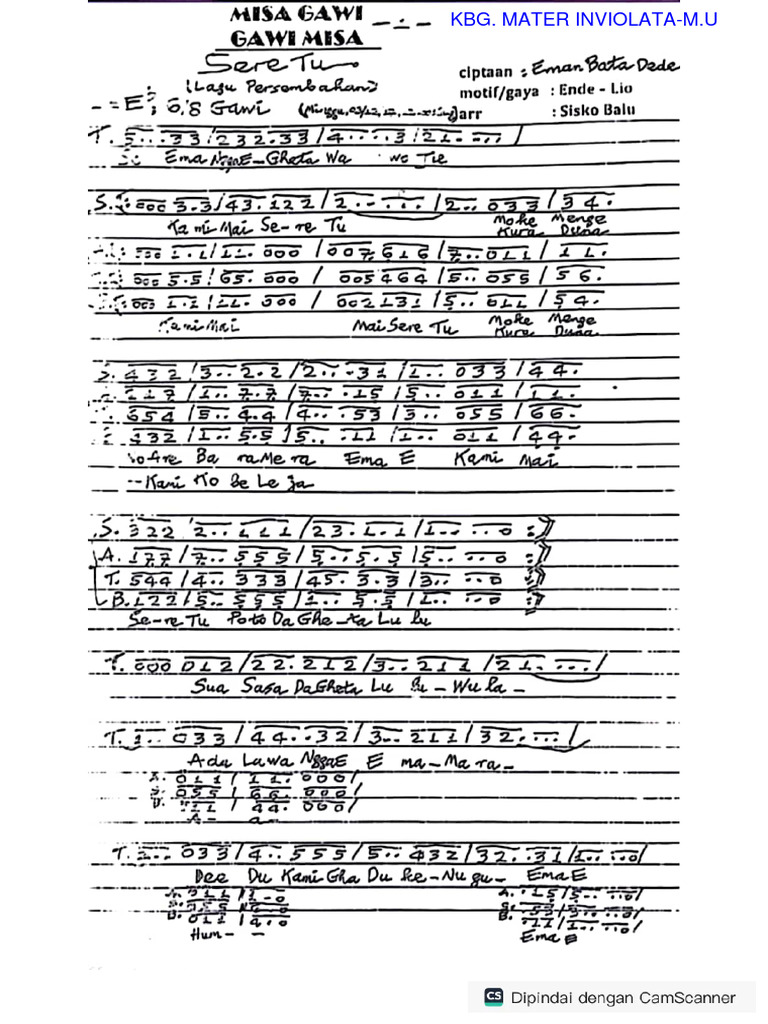 MISA GAWI
GAWI MISA
KBG. MATER INVIOLATA-M.U
Sere Tu
(Lagu Persembahan)
ciptaan : Eman Bata Dede
motif/gaya : Ende - Lio
arr : Sisko Balu
6/8 Gawi
T. 5...33/232.33/4....3/21....../
S: Ema NggaE-Gheta Wa wo Tie
S. 000 3.3/43.122/2....../2..033/34.
Kami Mai Se-re Tu Moke Menge
Kura Duna
000 1.1/11.000/007.616/7..011/11.
000 5.5/65.000/005464/5..055/56.
000 1.1/11.000/002131/5..011/54.
Kami Mai Mai Sere Tu Moke Menge
Kura Duna
S. 432/3..2.2/2...31/1..033/44.
117/1..7.7/7...15/5..011/11.
654/5..4.4/4...53/3..055/66.
432/1..5.5/5...11/1..011/44.
So Are Ba ra Me ra Ema E Kami Mai
--Kami Ko Be Le Ja
S. 322 2..111/23.1.1/1.....0
A. 177/7..555/5...5.5/5.....0
T. 544/4..333/45.3.3/3.....0
B. 122/5..555/1...5.5/1.....0
Se-re Tu Poto Da Ghe-ta Lu lu
T. 000 012/22.212/3..211/21....../
Sua Sasa DaGheta Lu lu-Wula-
T. 1..033/44..32/3..211/32...../
Adu Lawa NggaE E ma-Ma ra-
A. 011/11.000/
S. 055/66.000/
B. 011/44.000/
A- a-
T. 033/4..555/5..432/32..31/1.....0/
Dee Du Kami Gha Du ke-Nu gu- Ema E
Hum- -
Ema E
CS Dipindai dengan CamScanner